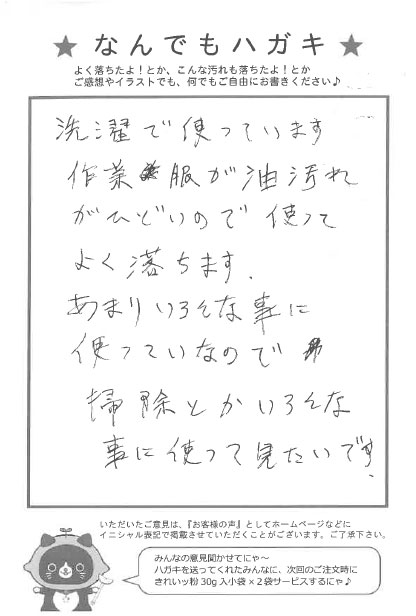 ★ なんでもハガキ ★
よく落ちたよ！とか、こんな汚れも落ちたよ！とか
ご感想やイラストでも、何でもご自由にお書きください♪
洗濯で使っています
作業服が油汚れ
がひどいので使って
よく落ちます.
あまりいろそな事に
使っていなので
掃除とかいろそな
事に使って見たいです.
いただいたご意見は、『お客様の声』としてホームページなどに
イニシャル表記で掲載させていただくことがございます。ご了承下さい。
みんなの意見聞かせてにゃ～
ハガキを送ってくれたみんなに、次回のご注文時に
きれいッ粉 30g 入小袋 × 2 袋サービスするにゃ♪